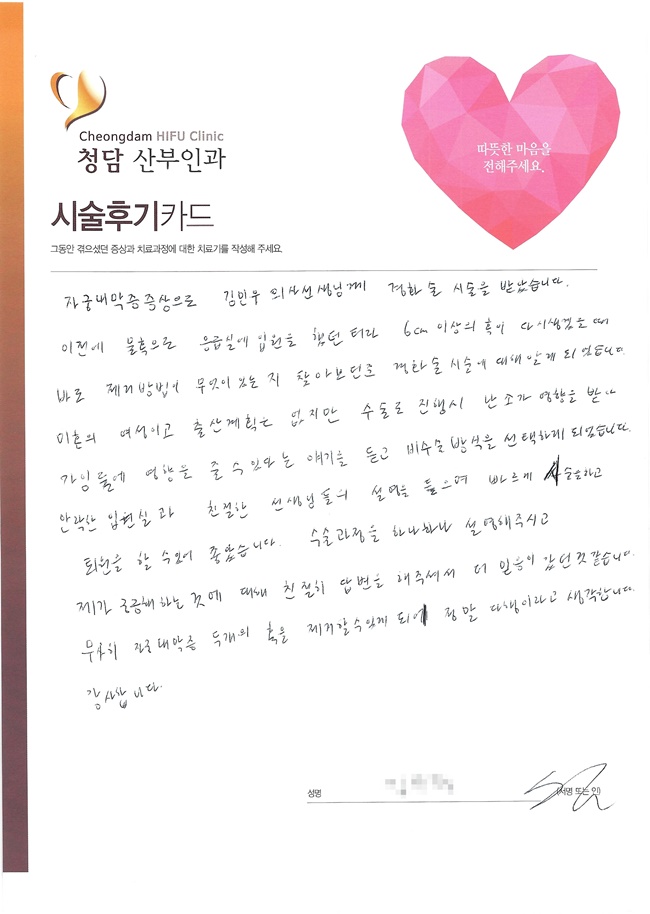 Cheongdam HIFU Clinic
청담 산부인과
따뜻한 마음을
전해주세요.
시술후기카드
그동안 겪으셨던 증상과 치료과정에 대한 치료기를 작성해 주세요.
자궁내막증증상으로 김민우 의사선생님께 경화술 시술을 받았습니다.
이전에 물혹으로 응급실에 입원을 했던 터라 6cm 이상의 혹이 다시생겼을 때
바로 제거방법이 무엇이 있는 지 찾아보던중 경화술 시술에 대해 알게 되었습니다.
미혼의 여성이고 출산계획은 없지만 수술로 진행시 난소가 영향을 받아
가임률에 영향을 줄 수 있다는 얘기를 듣고 비수술 방식을 선택하게 되었습니다.
안락한 입원실과 친절한 선생님들의 설명을 들으며 빠르게 수술하고
퇴원을 할 수 있어 좋았습니다. 수술과정을 하나하나 설명해주시고
제가 궁금해하는 것에 대해 친절히 답변을 해주셔서 더 믿음이 갔던것같습니다.
무사히 자궁내막증 두개의 혹을 제거할수있게 되어 정말 다행이라고 생각합니다.
감사합니다.
성명 (서명 또는 인)